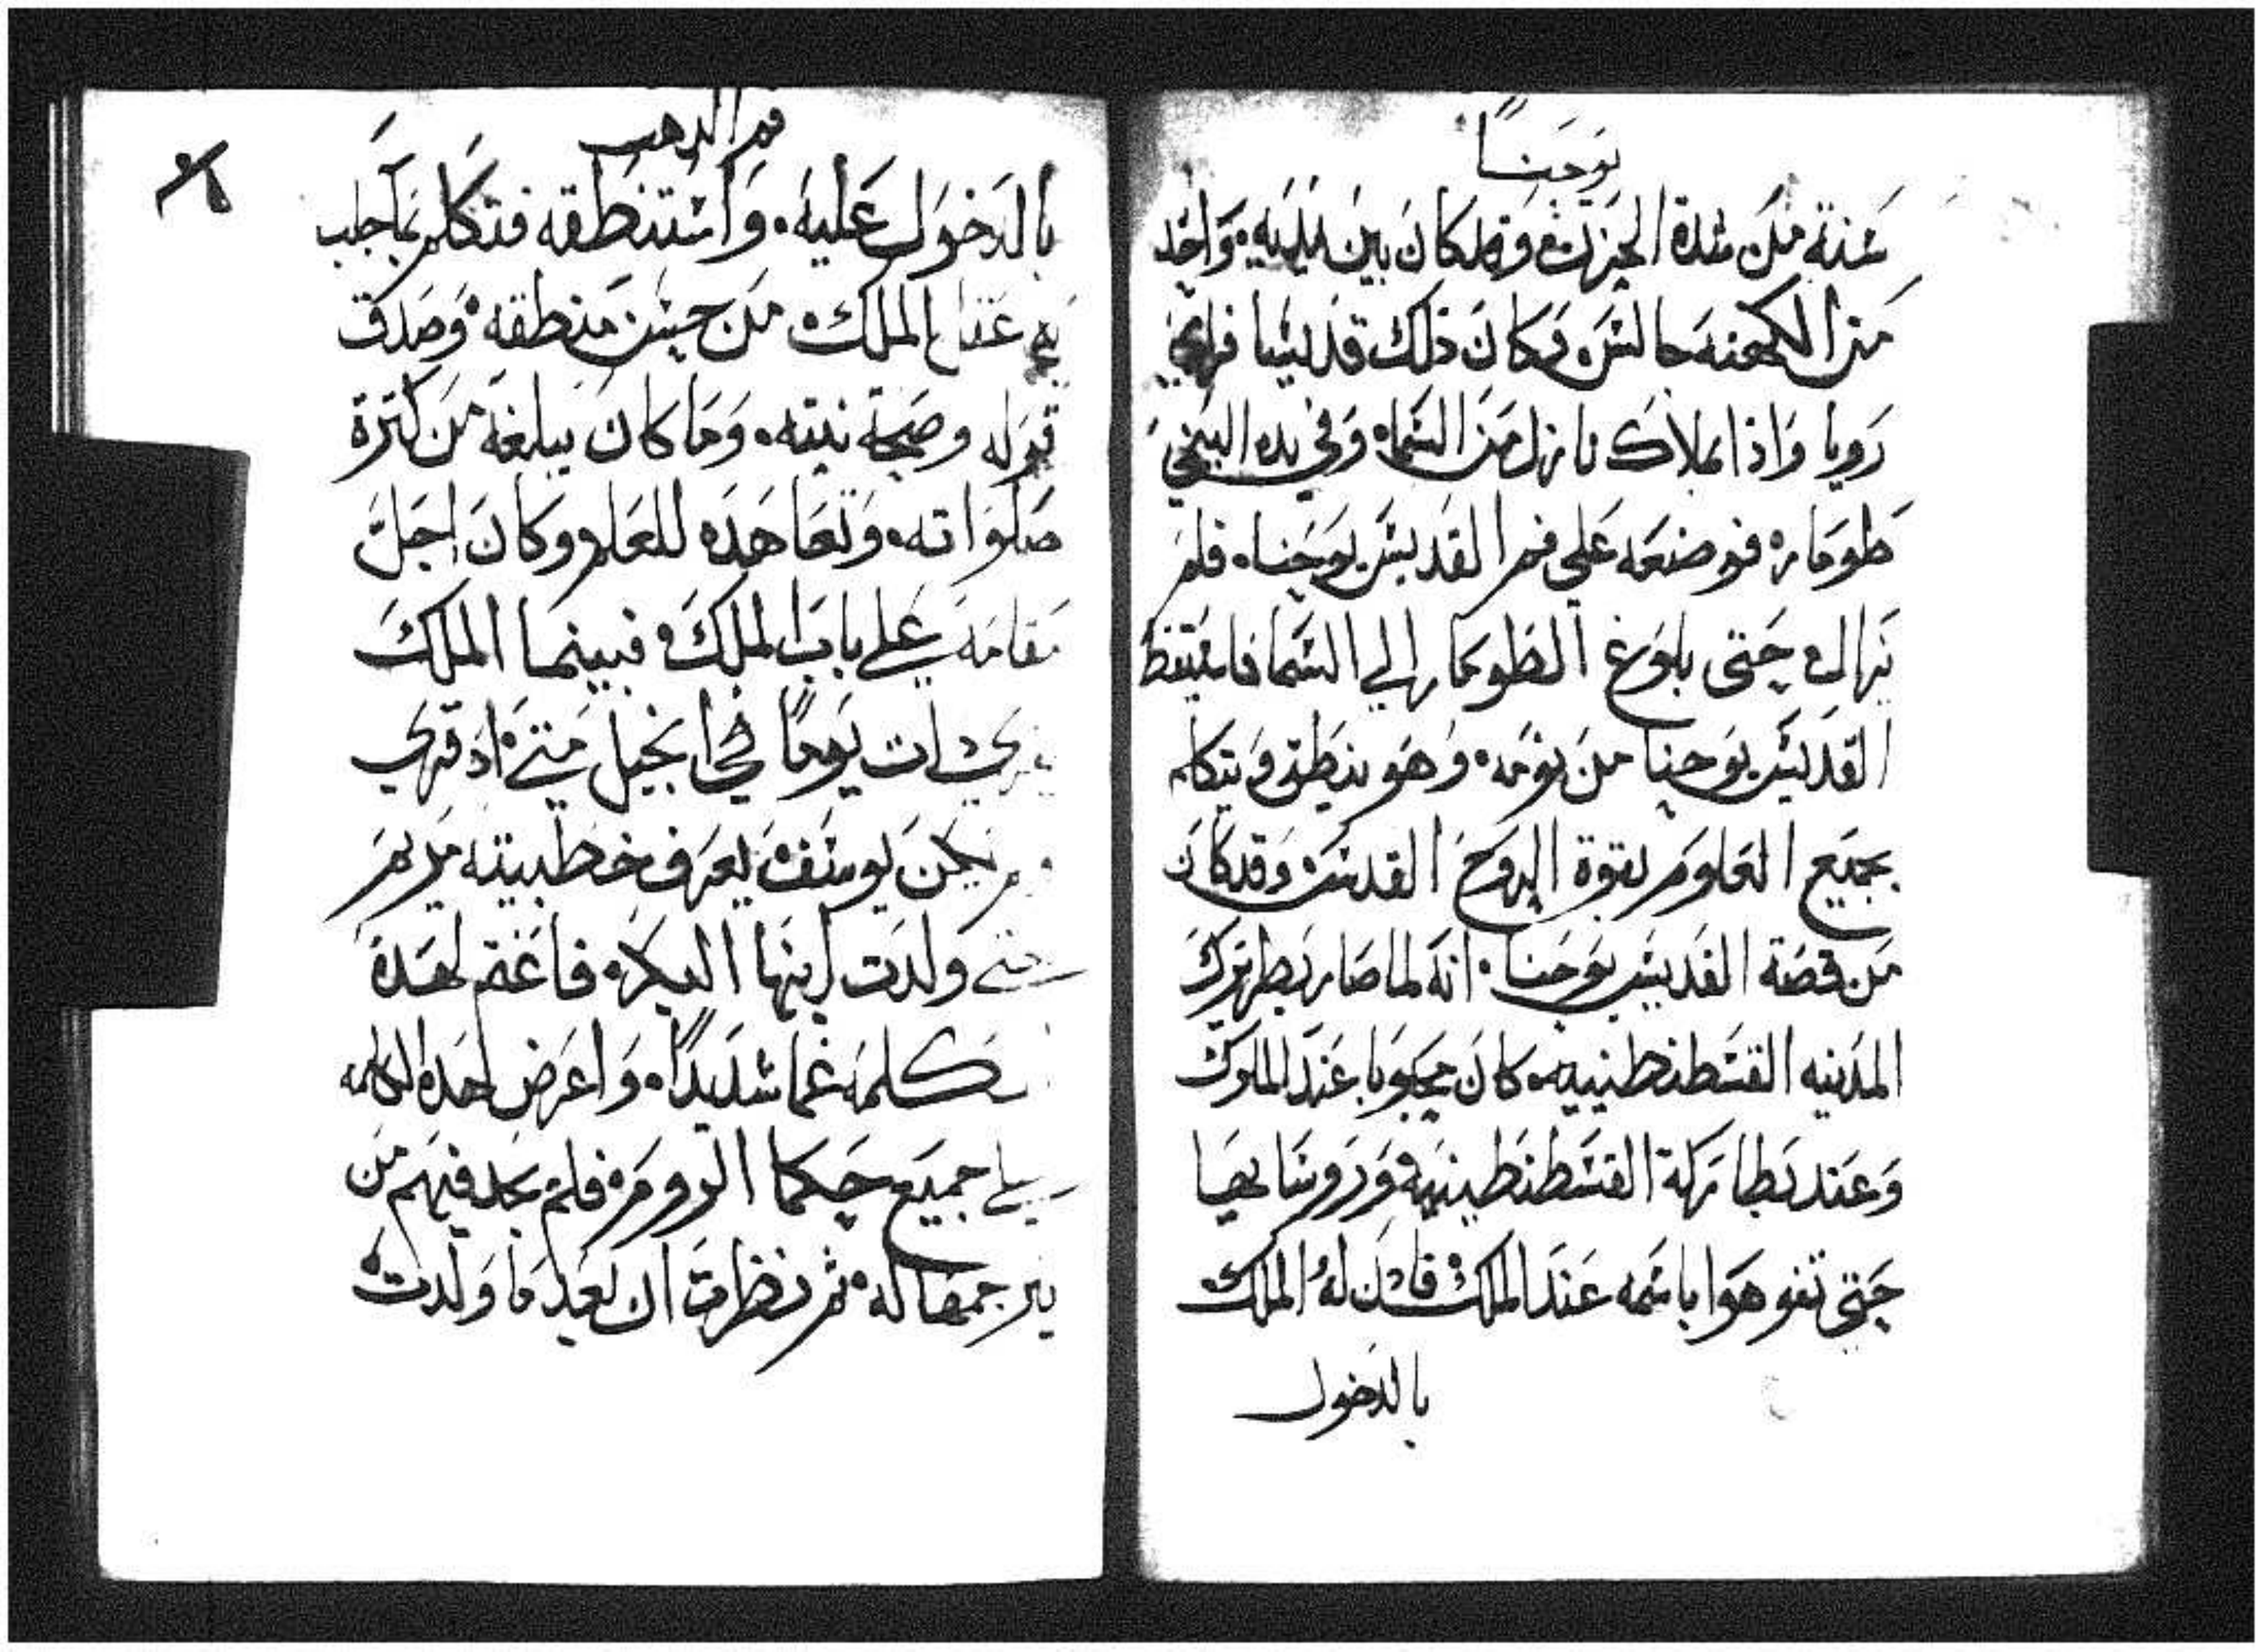 يوحنا
سنة من شدة الحزن وقد كان بين يديه واحد
من الكهنه جالس وكان ذلك قديسا فراي
رويا واذا بملاك نازل من السماء وفي يده اليمني
طومار فوضعه على فم القديس يوحنا فلم
يزال حتى بلوغ الطومار الي السما فاستيقظ
القديس يوحنا من نومه وهو ينطق ويتكلم
بجميع العلوم بقوة الروح القدس وقد كان
من قصة القديس يوحنا انه لما صار بطريرك
المدينه القسطنطينيه كان محبوبا عند الملوك
وعند بطاركة القسطنطينيه وروسايها
حتى تفوهوا باسمه عند الملك فاذن له الملك
بالدخول
فم الدهب
بالدخول عليه واستنطقه فتكلم بما جلب
به عقل الملك من حسن منطقه وصدق
قوله وصحة نيته وما كان يبلغه من كترة
صلواته وتعاهده للعلم وكان اجل
مقامه على باب الملك فبينما الملك
ات يوما في انجيل متى اذ قري
يكن يوسف يعرف خطيبته مريم
حتى ولدت ابنها البكر فاغتم لهذة
الكلمه غما شديدا واعرض لهذه الكلمه
علي جميع حكما الروم فلم يجد فيهم من
يترجمها له ثم نظرت ان بعد ما ولدت